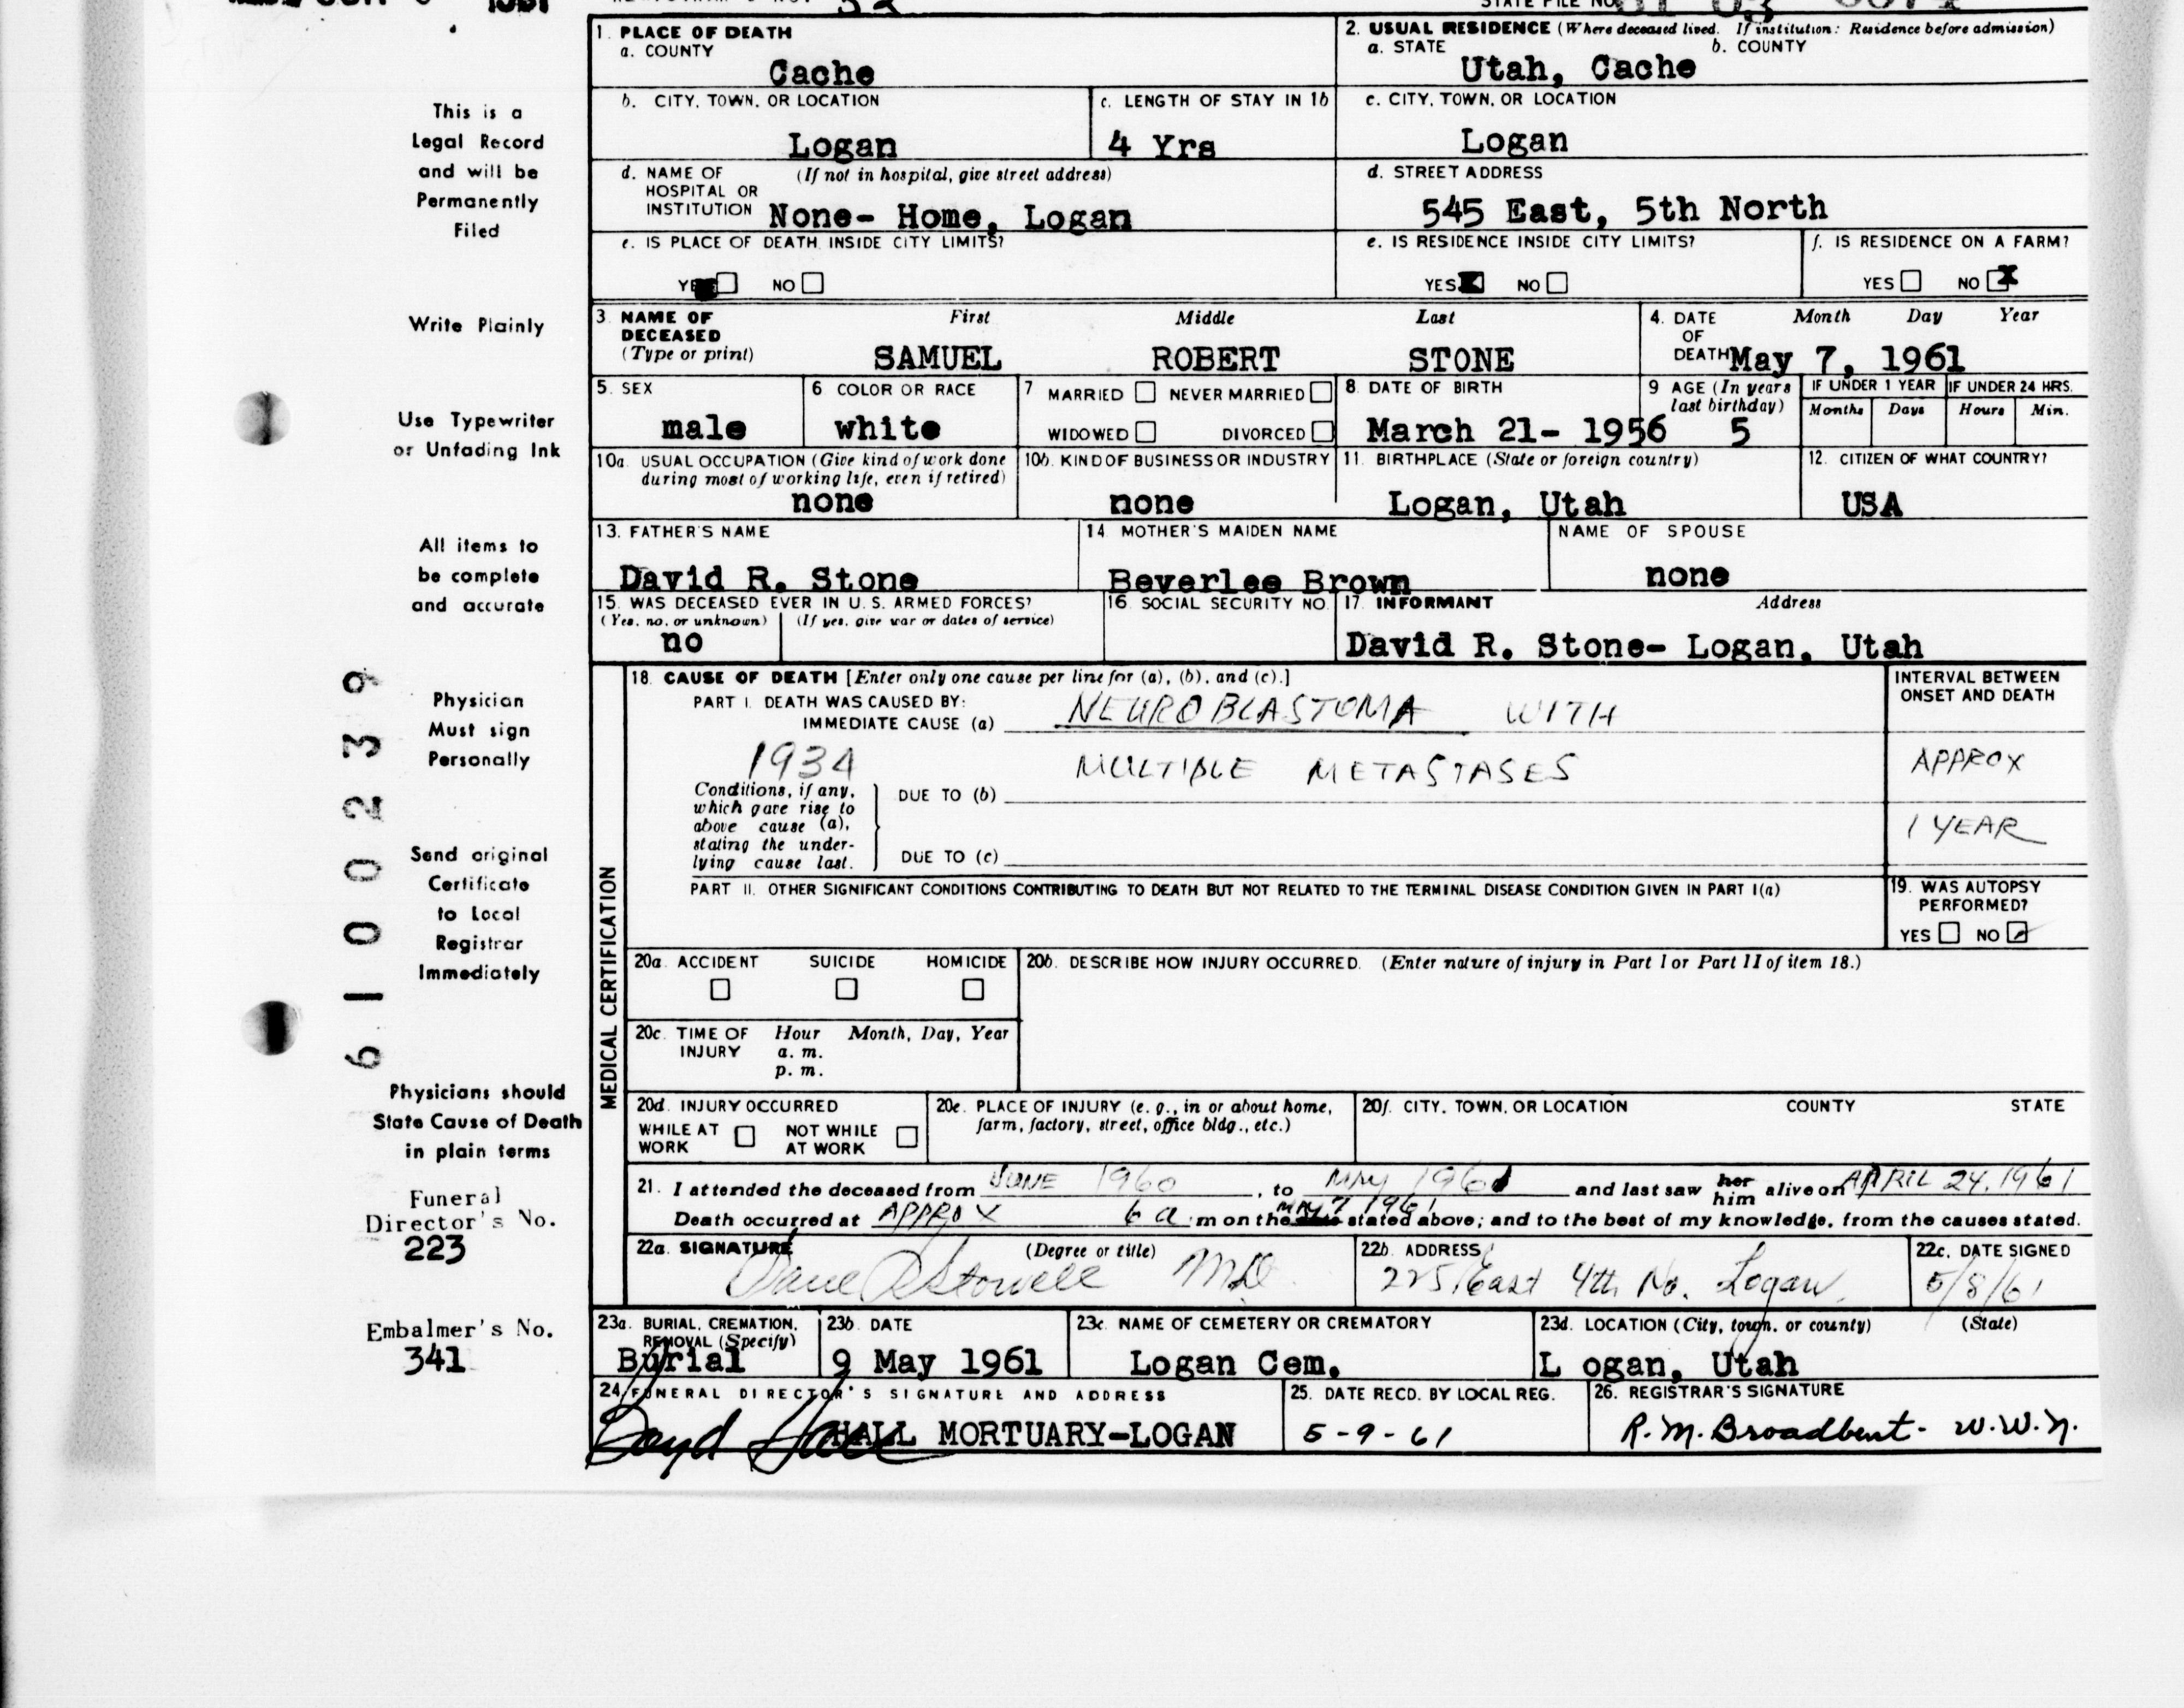 1. PLACE OF DEATH
a. COUNTY
Cache
2. USUAL RESIDENCE (Where deceased lived. If institution: Residence before admission)
a. STATE b. COUNTY
Utah, Cache
b. CITY, TOWN, OR LOCATION
Logan
c. LENGTH OF STAY IN 1b
4 Yrs
c. CITY, TOWN, OR LOCATION
Logan
d. NAME OF (If not in hospital, give street address)
HOSPITAL OR
INSTITUTION None- Home, Logan
d. STREET ADDRESS
545 East, 5th North
e. IS PLACE OF DEATH INSIDE CITY LIMITS?
YES NO
e. IS RESIDENCE INSIDE CITY LIMITS?
YES NO
f. IS RESIDENCE ON A FARM?
YES NO X
3. NAME OF First Middle Last
DECEASED
(Type or print) SAMUEL ROBERT STONE
4. DATE Month Day Year
OF
DEATH May 7, 1961
5. SEX
male
6 COLOR OR RACE
white
7 MARRIED NEVER MARRIED
WIDOWED DIVORCED
8. DATE OF BIRTH
March 21- 1956
9 AGE (In years
last birthday)
5
IF UNDER 1 YEAR
Months Days
IF UNDER 24 HRS.
Hours Min.
10a. USUAL OCCUPATION (Give kind of work done
during most of working life, even if retired)
none
10b. KIND OF BUSINESS OR INDUSTRY
none
11. BIRTHPLACE (State or foreign country)
Logan, Utah
12. CITIZEN OF WHAT COUNTRY?
USA
13. FATHER'S NAME
David R. Stone
14. MOTHER'S MAIDEN NAME
Beverlee Brown
NAME OF SPOUSE
none
15. WAS DECEASED EVER IN U. S. ARMED FORCES?
(Yes, no, or unknown) (If yes, give war or dates of service)
no
16. SOCIAL SECURITY NO.
17. INFORMANT Address
David R. Stone- Logan, Utah
MEDICAL CERTIFICATION
18. CAUSE OF DEATH [Enter only one cause per line for (a), (b), and (c).]
PART I. DEATH WAS CAUSED BY:
IMMEDIATE CAUSE (a) NEUROBLASTOMA WITH
1934 MULTIPLE METASTASES
Conditions, if any,
which gave rise to
above cause (a),
stating the under-
lying cause last.
DUE TO (b)
DUE TO (c)
INTERVAL BETWEEN
ONSET AND DEATH
APPROX
1 YEAR
PART II. OTHER SIGNIFICANT CONDITIONS CONTRIBUTING TO DEATH BUT NOT RELATED TO THE TERMINAL DISEASE CONDITION GIVEN IN PART I(a)
19. WAS AUTOPSY
PERFORMED?
YES NO
20a. ACCIDENT SUICIDE HOMICIDE
20b. DESCRIBE HOW INJURY OCCURRED. (Enter nature of injury in Part I or Part II of item 18.)
20c. TIME OF Hour Month, Day, Year
INJURY a. m.
p. m.
20d. INJURY OCCURRED
WHILE AT NOT WHILE
WORK AT WORK
20e. PLACE OF INJURY (e. g., in or about home,
farm, factory, street, office bldg., etc.)
20f. CITY, TOWN, OR LOCATION COUNTY STATE
21. I attended the deceased from JUNE 1960, to MAY 1961 and last saw her him alive on APRIL 24, 1961
Death occurred at APPROX 6 a. m on the MAY 7 1961 stated above; and to the best of my knowledge, from the causes stated.
22a. SIGNATURE (Degree or title)
Stowell MD
22b. ADDRESS
225 East 4th No. Logan
22c. DATE SIGNED
5/8/61
23a. BURIAL, CREMATION,
REMOVAL (Specify)
Burial
23b. DATE
9 May 1961
23c. NAME OF CEMETERY OR CREMATORY
Logan Cem.
23d. LOCATION (City, town, or county) (State)
L ogan, Utah
24. FUNERAL DIRECTOR'S SIGNATURE AND ADDRESS
Boyd Hall HALL MORTUARY-LOGAN
25. DATE RECD. BY LOCAL REG.
5-9-61
26. REGISTRAR'S SIGNATURE
R. M. Broadbent - W.W.N.
This is a
Legal Record
and will be
Permanently
Filed
Write Plainly
Use Typewriter
or Unfading Ink
All items to
be complete
and accurate
Physician
Must sign
Personally
Send original
Certificate
to Local
Registrar
Immediately
Physicians should
State Cause of Death
in plain terms
Funeral
Director's No.
223
Embalmer's No.
341
6100239